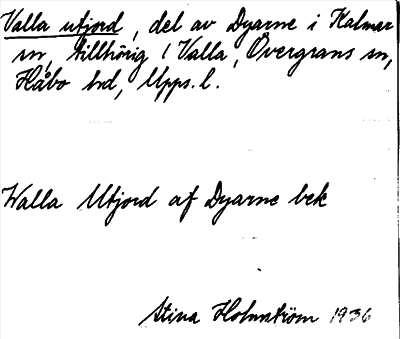 Valla utjord, del av Dyarne i Kalmar
sn, tillhörig 1 Valla, Övergrans sn,
Håbo hd, Upps. l.
Walla Utjord af Dyarne bek
Stina Holmström 1936